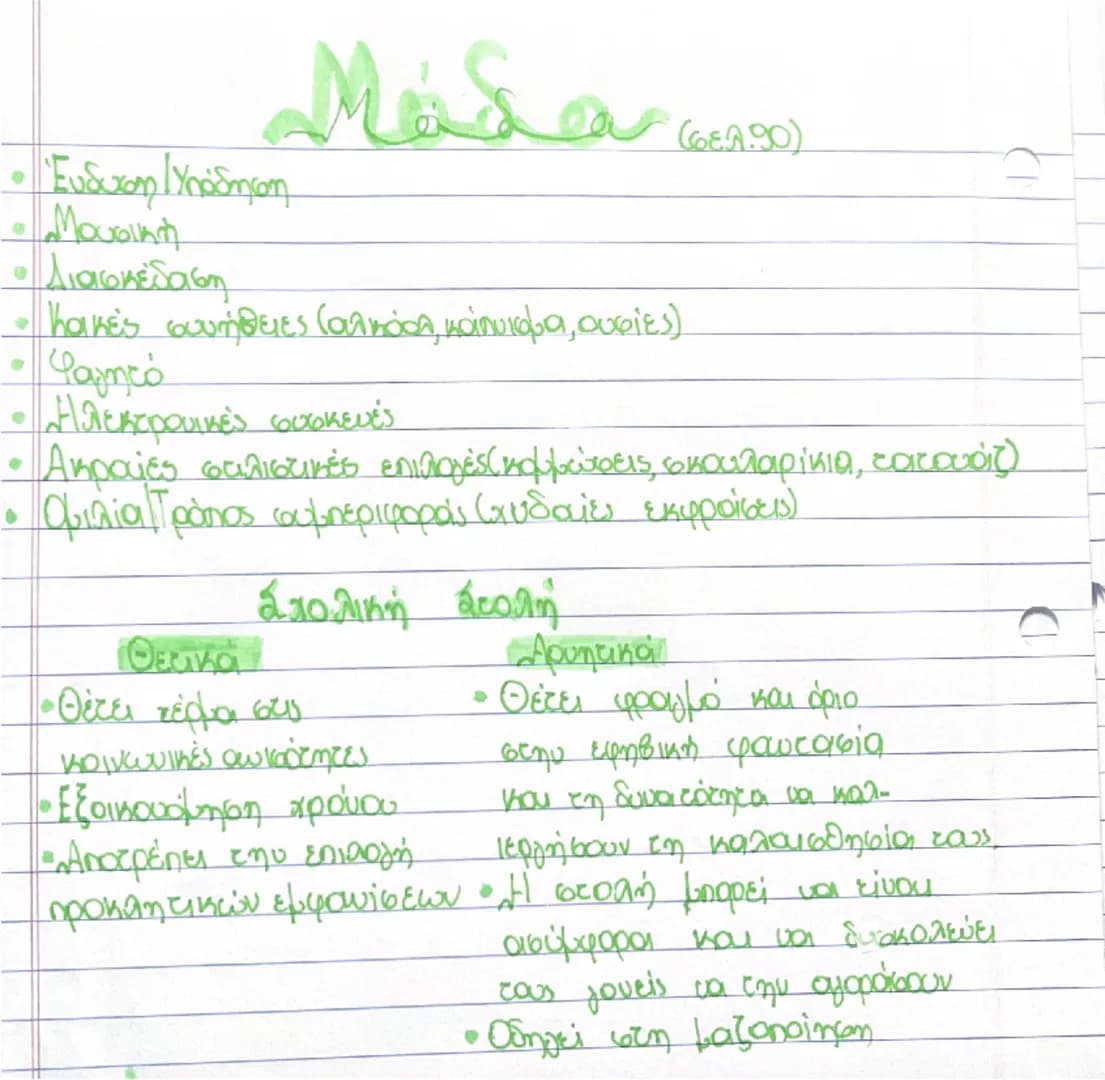 Μόδα (σελ.90)
• Ένδυση/Υπόδηση
• Μουσική
• Διασκέδαση
• Κακές συνήθειες (αλκοόλ, κάπνισμα, ουσίες)
• Φαγητό
• Ηλεκτρονικές συσκευές
• Ακραίες στιλιστικές επιλογές (κομμώσεις, σκουλαρίκια, τατουάζ)
• Ομιλία/Τρόπος συμπεριφοράς (χυδαίες εκφράσεις)
Σχολική Στολή
Θετικά
• Θέτει τέρμα στις
κοινωνικές ανισότητες
• Εξοικονόμηση χρόνου
• Αποτρέπει την επιλογή
προκλητικών εμφανίσεων
Αρνητικά
• Θέτει φραγμό και όριο
στην εφηβική φαντασία
και τη δυνατότητα να καλ-
ιεργήσουν τη καλαισθησία τους.
• Η στολή μπορεί να είναι
ασύμφορη και να δυσκολεύει
τους γονείς να την αγοράσουν
• Οδηγεί στη μαζοποίηση